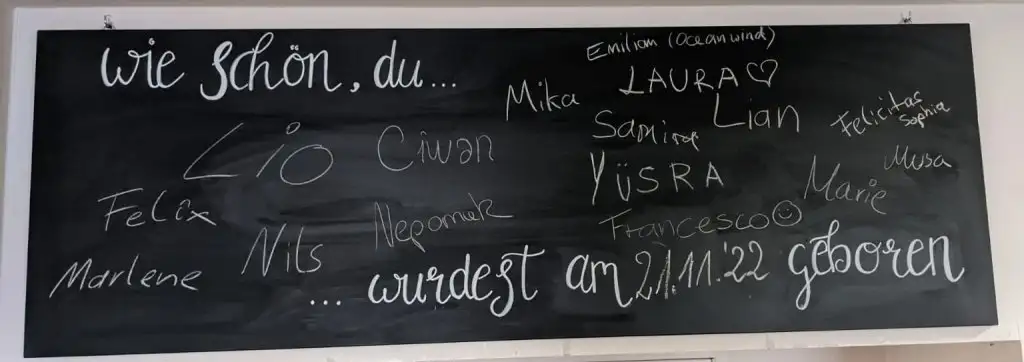 wie schön, du...
Emiliam (Oceanwind)
LAURA♡
Mika
Lian
Felicitas
Sophia
Samira
Lio
Ciwan
Musa
YÜSRA
Marie
Felix
Nepomuk
Francesco☺
Nils
Marlene
... wurdest am 21.11.'22 geboren